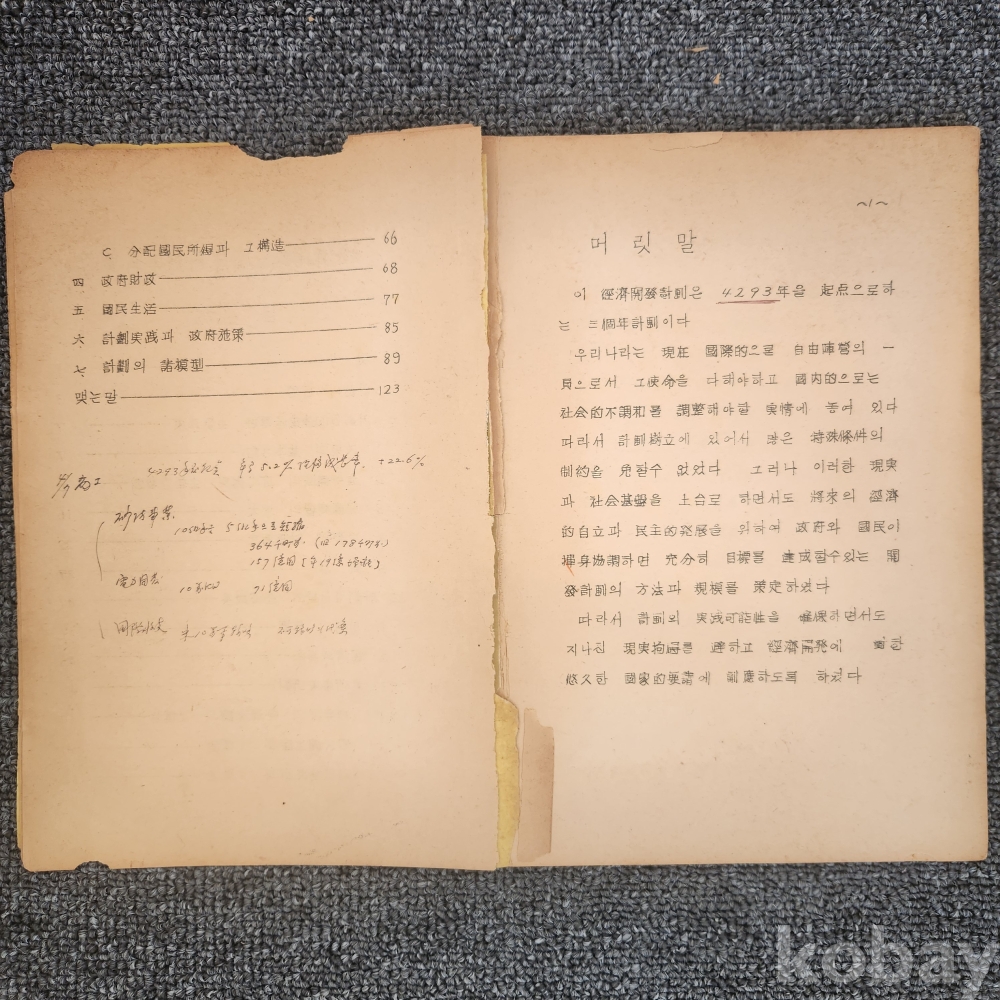 C. 分配國民所得과 그構造 66
四 政府財政 68
五 國民生活 77
六 計劃実践과 政府施策 85
七 計劃의 諸模型 89
맺는말 123
4293 5.2% 成長率
砂防事業
105
364千町步
157億圜
電力
10万KW 71億圜
~1~
머 릿 말
이 經済開發計劃은 4293年을 起点으로하
는 三個年計劃이다
우리나라는 現在 國際的으로 自由陣營의 一
員으로서 그使命을 다해야하고 國内的으로는
社会的不調和를 調整해야할 実情에 놓여 있다
따라서 計劃樹立에 있어서 많은 特殊條件의
制約을 免할수 없었다 그러나 이러한 現実
과 社会基盤을 土台로 하면서도 將來의 經済
的自立과 民主的発展을 위하여 政府와 國民이
揮身協調하면 充分히 目標를 達成할수있는 開
發計劃의 方法과 規模를 策定하였다
따라서 計劃의 実践可能性을 하면서도
지나친 現実拘泥를 避하고 經済開発에 한
悠久한 國家的要請에 副應하도록 하였다
kobay